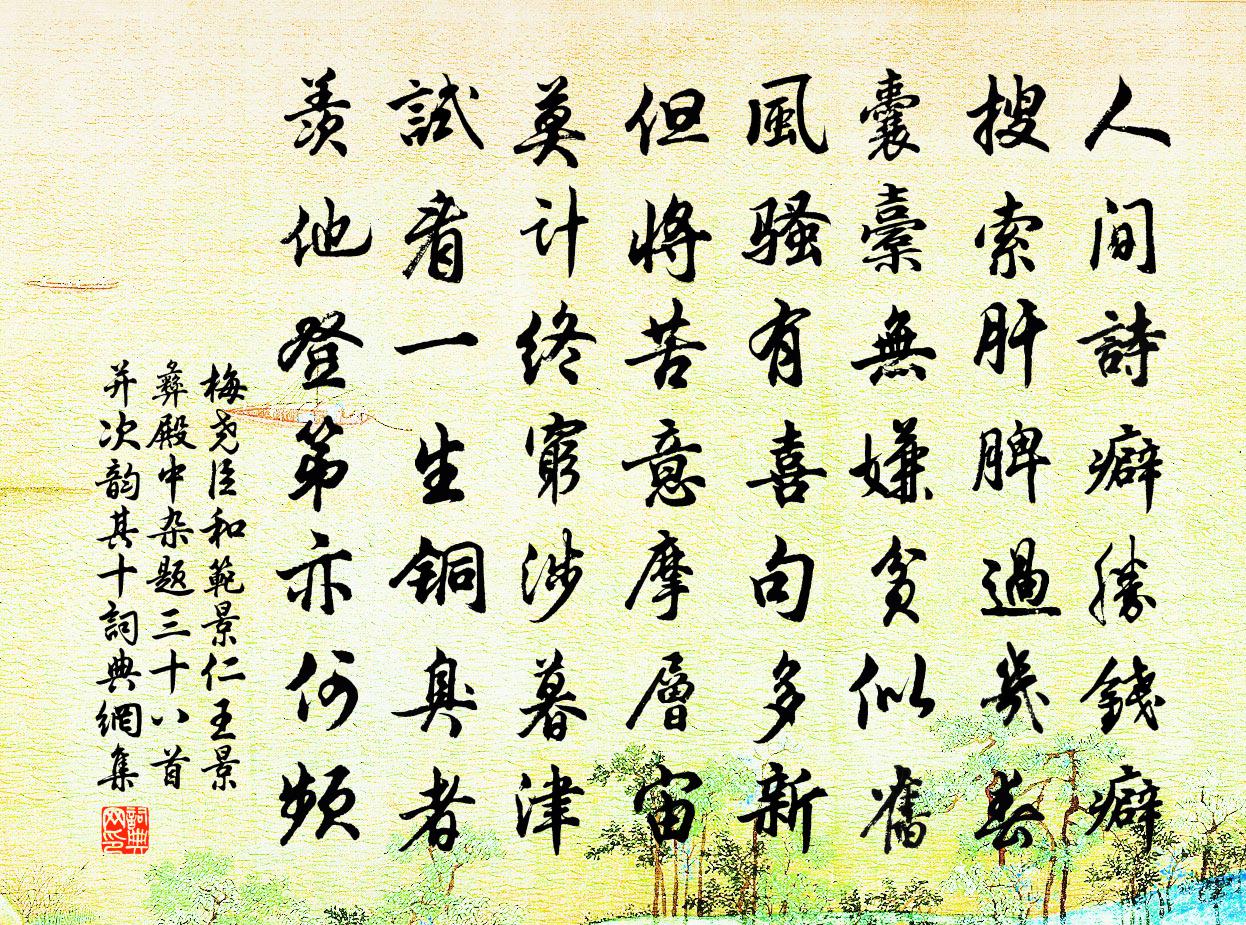 人間詩癖勝錢癖
搜索肝脾過幾春
囊橐無嫌貧似舊
風騷有喜句多新
但將苦意摩層宙
莫計终窮涉暮津
試看一生銅臭者
羨他登第亦何頻
梅尧臣和範景仁王景
彝殿中杂題三十八首
并次韵其十詞典網集